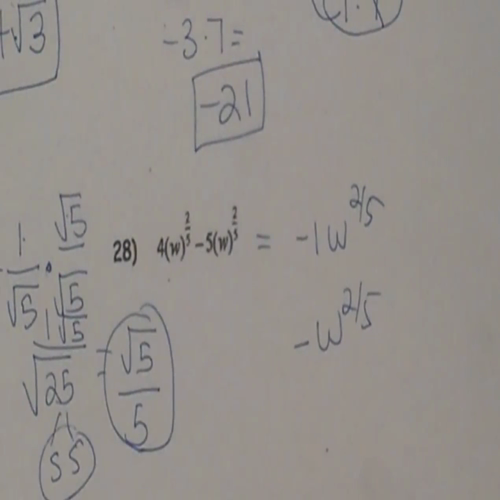 √3
-3·7=
-21
1/√5 · √5/√5
1√5/√25 = √5/5
55
28) 4(w)^(2/5) - 5(w)^(2/5) = -1w^(2/5)
-w^(2/5)